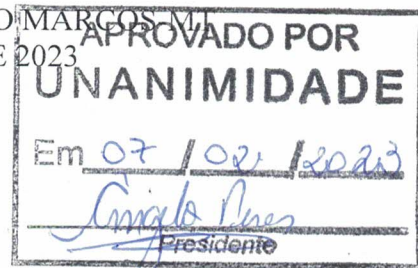 O MARCOS-MI
E 2023
APROVADO POR
UNANIMIDADE
Em 07 / 02 / 2023
Presidente